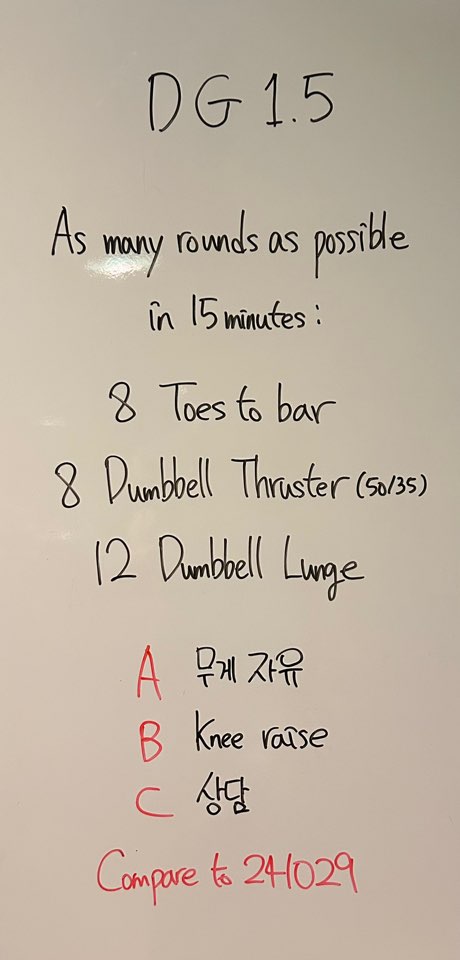 DG 1.5
As many rounds as possible
in 15 minutes:
8 Toes to bar
8 Dumbbell Thruster (50/35)
12 Dumbbell Lunge
A 무게 자유
B Knee raise
C 상담
Compare to 241029